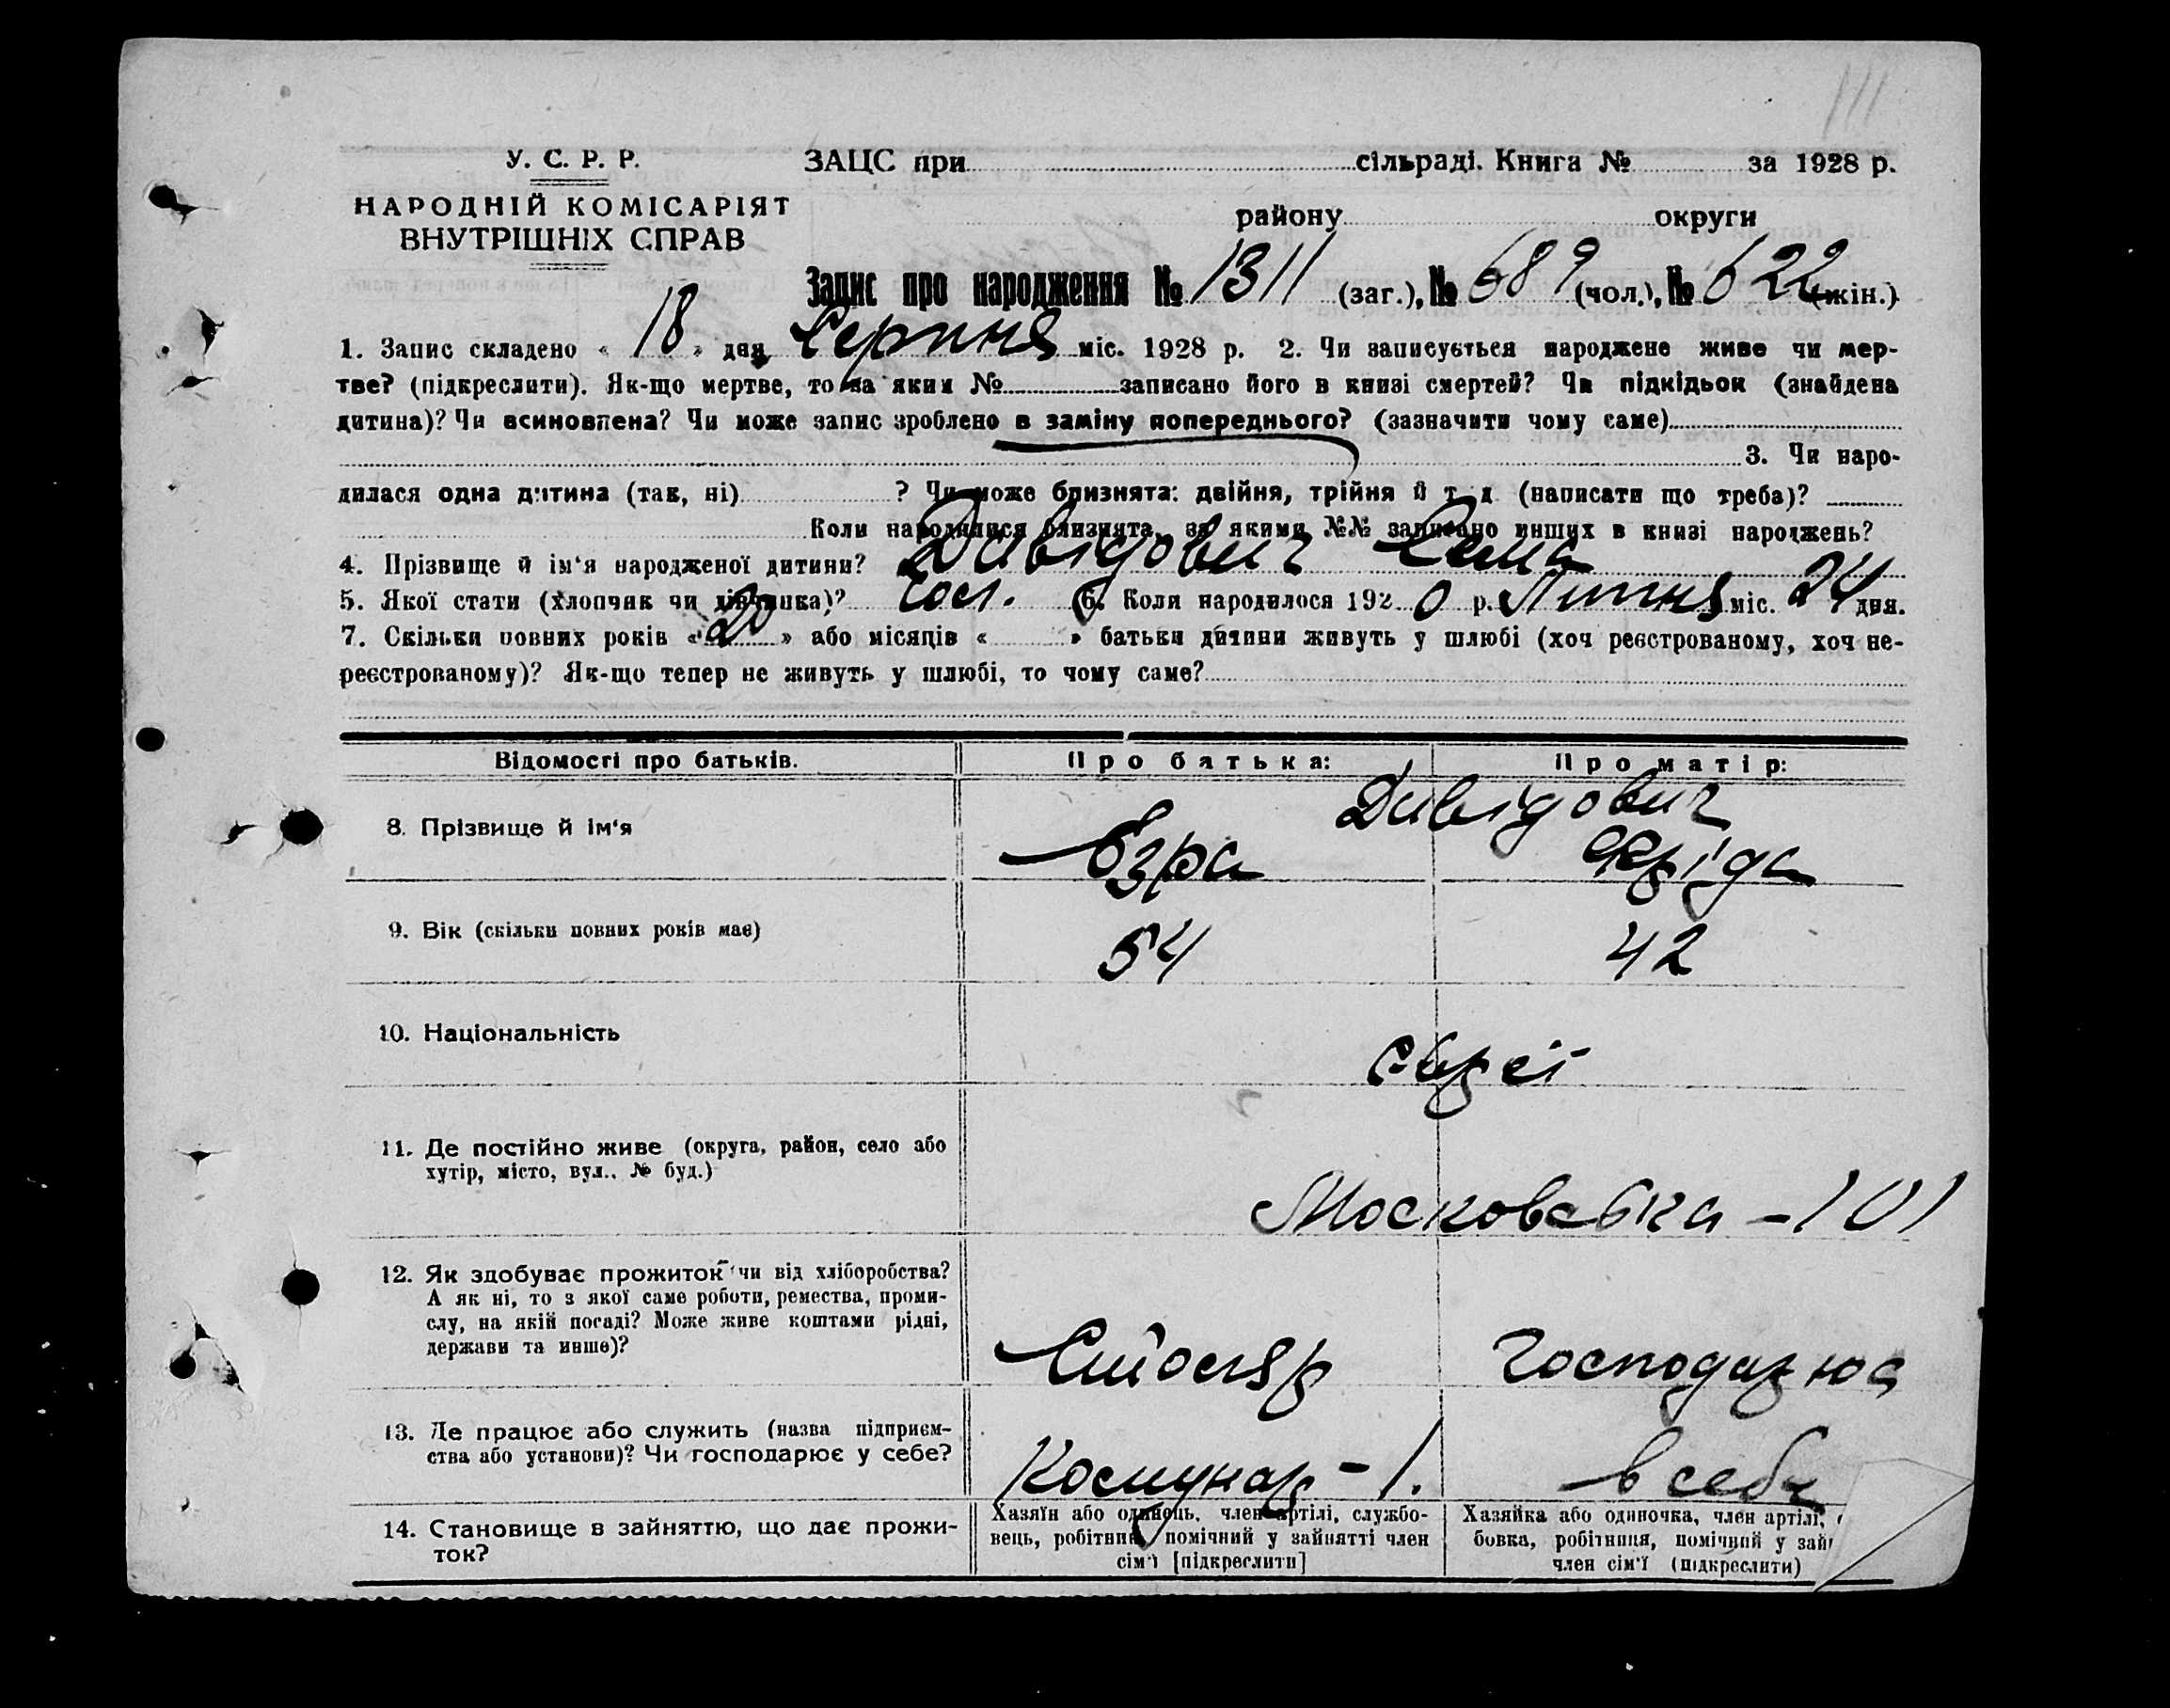 111
У. С. Р. Р.
НАРОДНІЙ КОМІСАРІЯТ
ВНУТРІШНІХ СПРАВ
ЗАЦС при сільраді. Книга № за 1928 р.
району округи
Запис про народження № 1311 (заг.), № 689 (чол.), № 622 (жін.)
1. Запис складено « 18 » дня Серпня міс. 1928 р. 2. Чи записується народжене живе чи мер-
тве? (підкреслити). Як-що мертве, то за яким № записано його в книзі смертей? Чи підкідьок (знайдена
дитина)? Чи всиновлена? Чи може запис зроблено в заміну попереднього? (зазначити чому саме)
3. Чи наро-
дилася одна дитина (так, ні) ? Чи може близнята: двійня, трійня й т. д. (написати що треба)?
Коли народилися близнята, за якими №№ записано инших в книзі народжень?
4. Прізвище й ім'я народженої дитини? Давідович Сема
5. Якої стати (хлопчик чи дівчинка)? чол. 6. Коли народилося 1920 р. Липня міс. 24 дня.
7. Скільки повних років « 20 » або місяців « » батьки дитини живуть у шлюбі (хоч реєстрованому, хоч не-
реєстрованому)? Як-що тепер не живуть у шлюбі, то чому саме?
Відомості про батьків. Про батька: Про матір:
Давідович
8. Прізвище й ім'я Езра Фріда
9. Вік (скільки повних років має) 54 42
10. Національність євреї
11. Де постійно живе (округа, район, село або
хутір, місто, вул., № буд.)
Московська - 101
12. Як здобуває прожиток чи від хліборобства?
А як ні, то з якої саме роботи, ремества, проми-
слу, на якій посаді? Може живе коштами рідні,
держави та инше)?
Столяр Господарює
13. Де працює або служить (назва підприєм-
ства або установи)? Чи господарює у себе?
Комунар - 1. в себе
14. Становище в зайняттю, що дає прожи-
ток?
Хазяїн або одинець, член артілі, службо-
вець, робітник, помічний у зайнятті член
сім'ї [підкреслити]
Хазяйка або одиночка, член артілі,
бовка, робітниця, помічний у зай
член сім'ї (підкреслити)